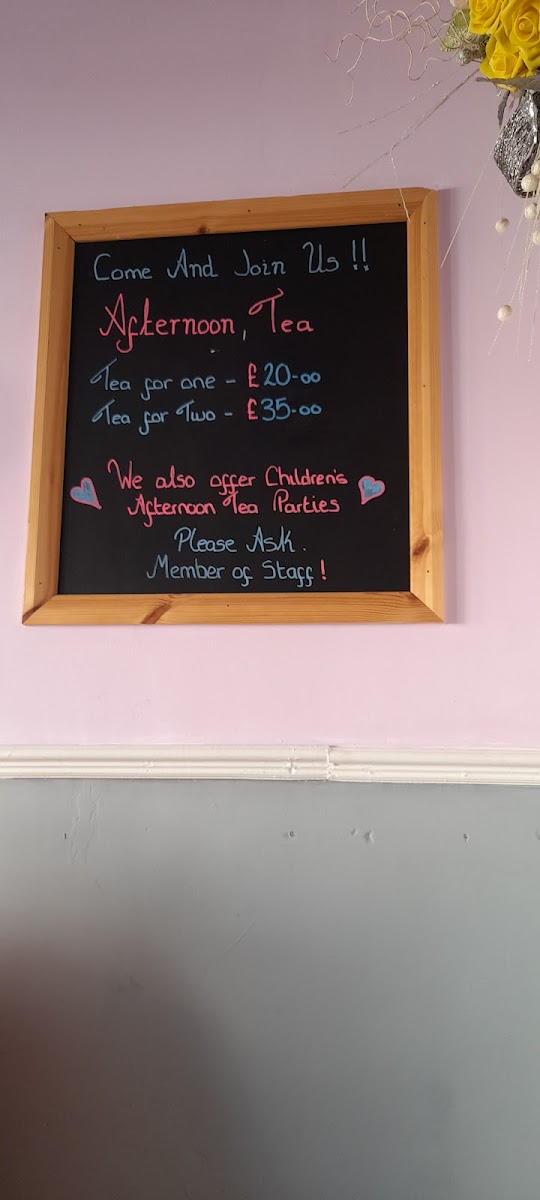 Come And Join Us !!
Afternoon Tea
Tea for one - £20-00
Tea for Two - £35-00
We also offer Children's
Afternoon Tea Parties
Please Ask.
Member of Staff!